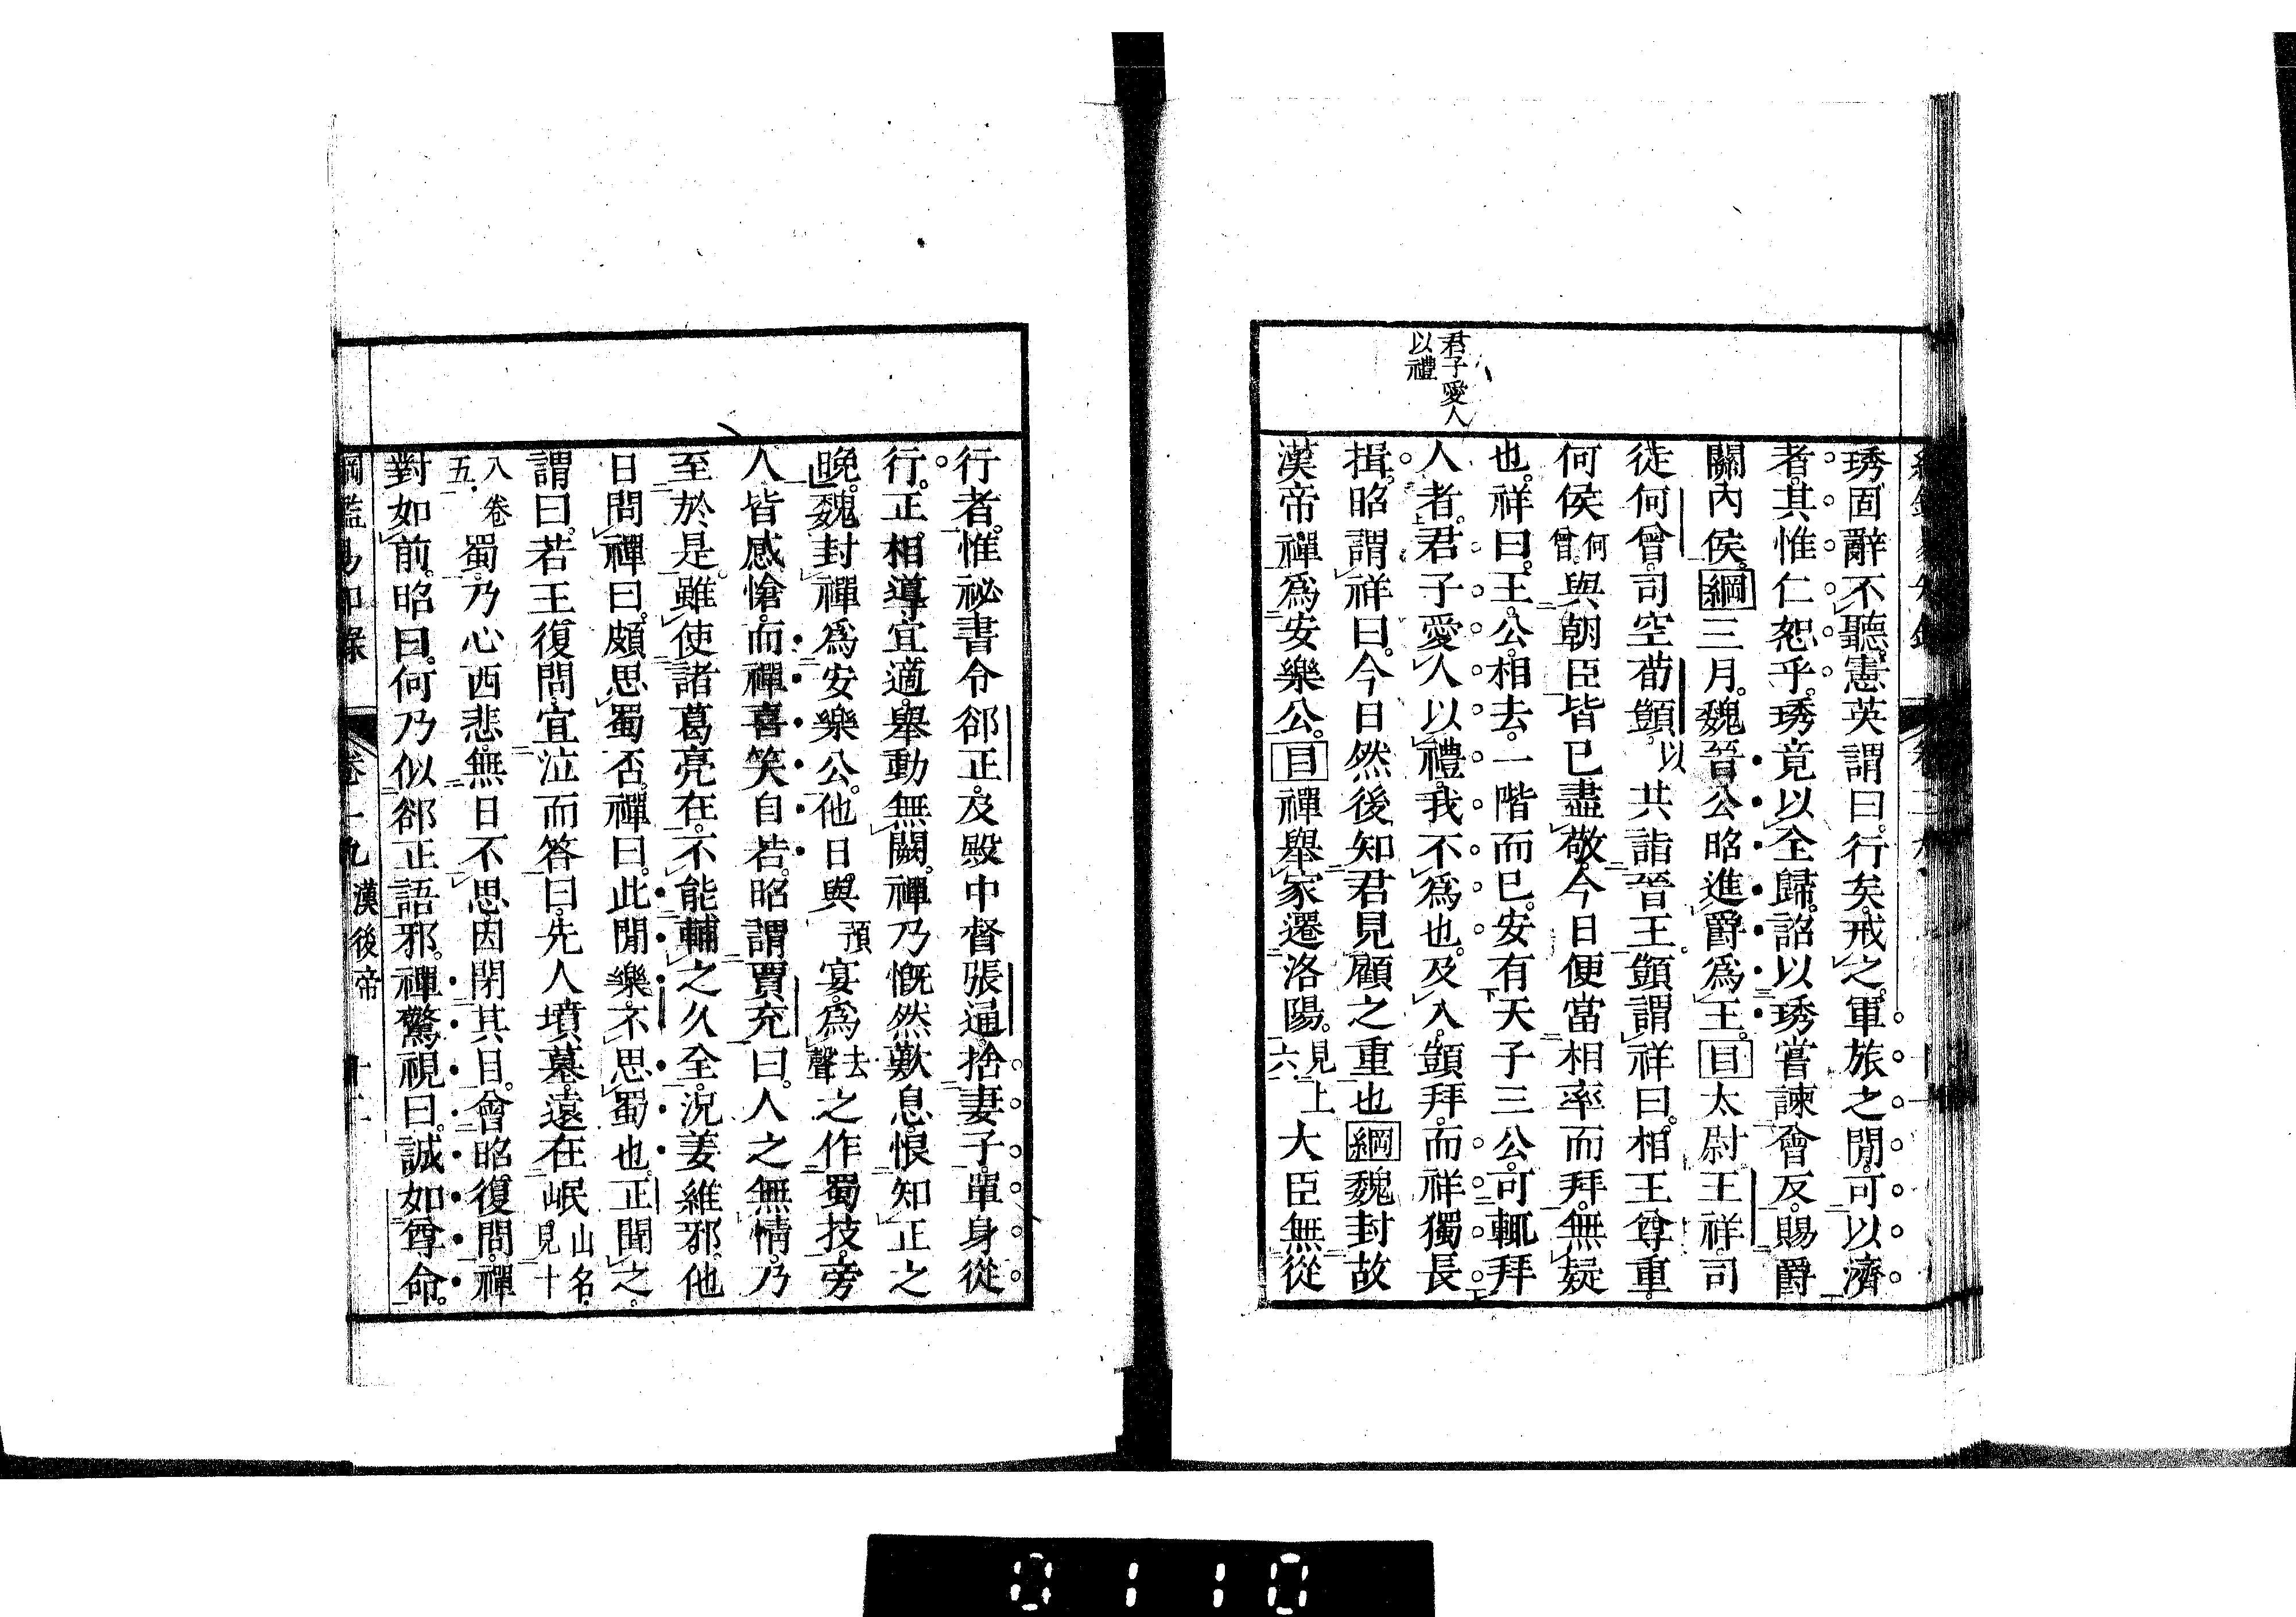 君子愛人
以禮
琇固辭不聽憲英謂曰行矣戒之軍旅之閒可以濟
者其惟仁恕乎琇竟以全歸詔以琇嘗諫會反賜爵
關內侯綱三月魏晉公昭進爵爲王目太尉王祥司
徒何曾司空荀顗以共詣晉王顗謂祥曰相王尊重
何侯何曾與朝臣皆已盡敬今日便當相率而拜無疑
也祥曰王公相去一階而已安有天子三公可輒拜
人者君子愛人以禮我不爲也及入顗拜而祥獨長
揖昭謂祥曰今日然後知君見顧之重也綱魏封故
漢帝禪爲安樂公目禪舉家遷洛陽見上六大臣無從
行者惟祕書令郤正及殿中督張通捨妻子單身從
行正相導宜適舉動無闕禪乃慨然歎息恨知正之
晚魏封禪爲安樂公他日與預宴爲去聲之作蜀技旁
人皆感愴而禪喜笑自若昭謂賈充曰人之無情乃
至於是雖使諸葛亮在不能輔之久全況姜維邪他
日問禪曰頗思蜀否禪曰此閒樂不思蜀也正聞之
謂曰若王復問宜泣而答曰先人墳墓遠在岷山名見十
八卷五蜀乃心西悲無日不思因閉其目會昭復問禪
對如前昭曰何乃似郤正語邪禪驚視曰誠如尊命
綱鑑易知錄 卷十九 漢後帝 十二
0110